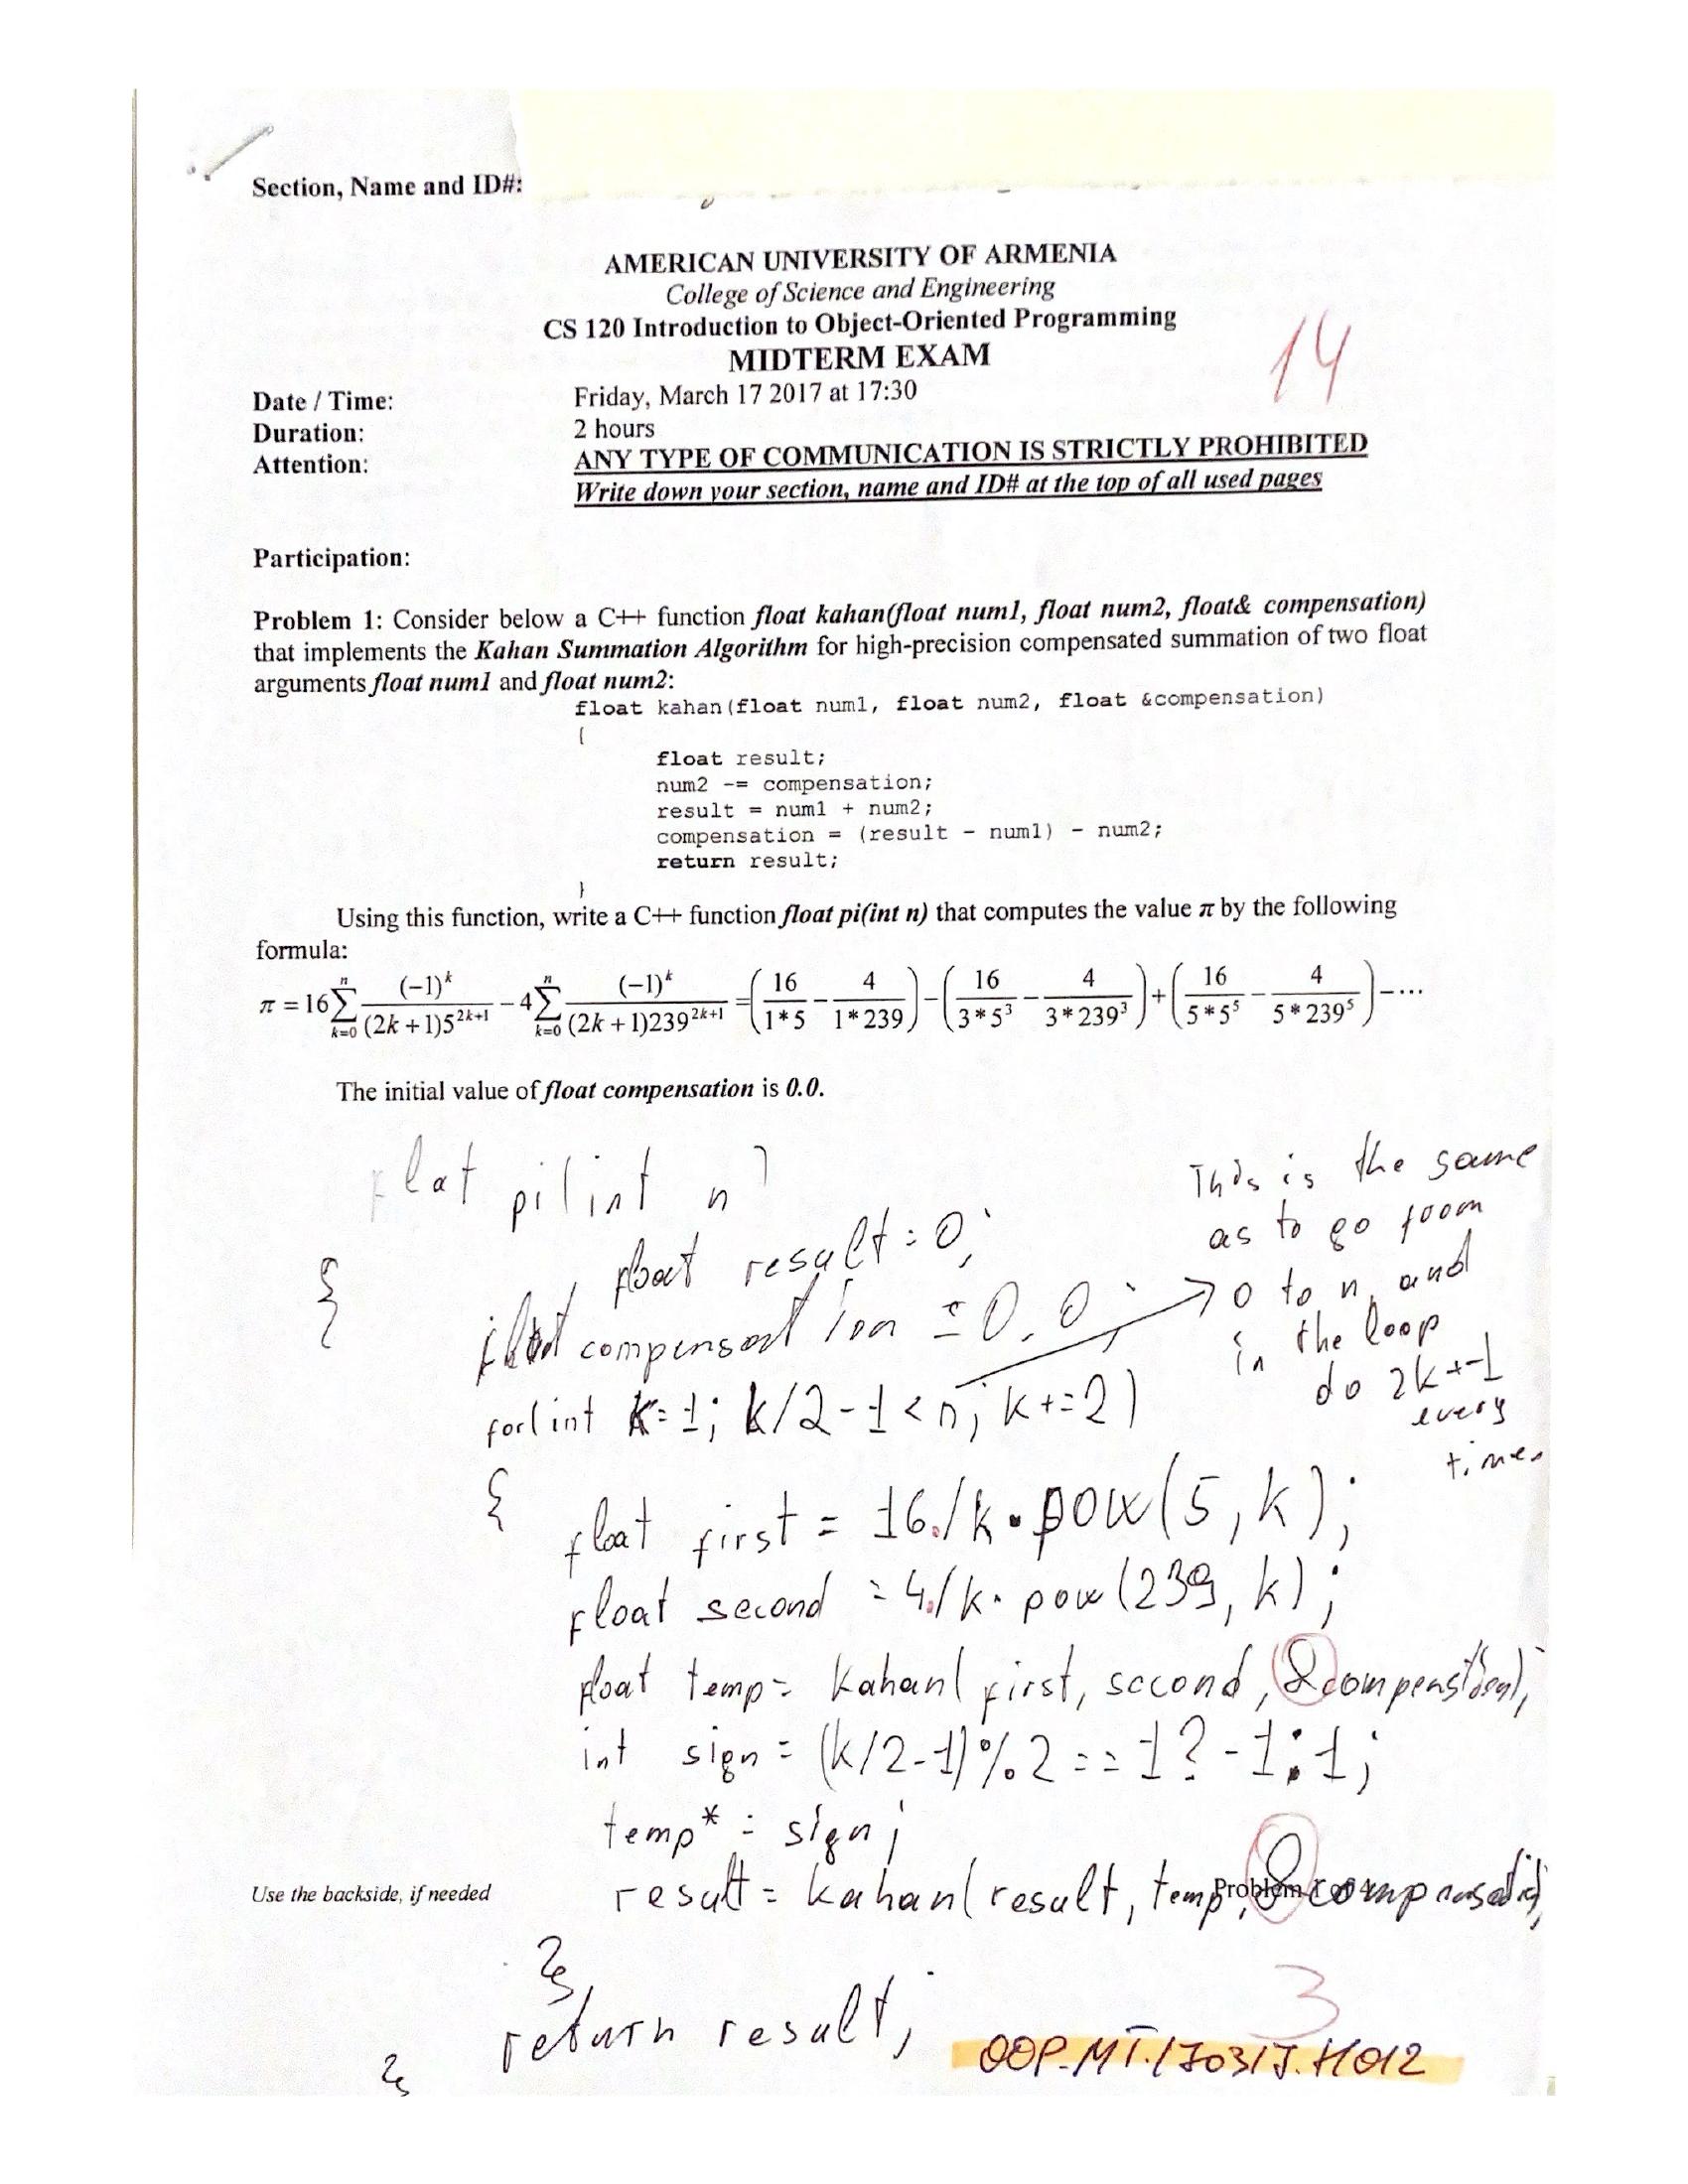 Section, Name and ID#:
AMERICAN UNIVERSITY OF ARMENIA
College of Science and Engineering
CS 120 Introduction to Object-Oriented Programming
MIDTERM EXAM
14
Date / Time: Friday, March 17 2017 at 17:30
Duration: 2 hours
Attention: ANY TYPE OF COMMUNICATION IS STRICTLY PROHIBITED
Write down your section, name and ID# at the top of all used pages
Participation:
Problem 1: Consider below a C++ function float kahan(float num1, float num2, float& compensation)
that implements the Kahan Summation Algorithm for high-precision compensated summation of two float
arguments float num1 and float num2:
float kahan(float num1, float num2, float &compensation)
{
float result;
num2 -= compensation;
result = num1 + num2;
compensation = (result - num1) - num2;
return result;
}
Using this function, write a C++ function float pi(int n) that computes the value π by the following
formula:
π = 16∑_{k=0}^{n} (-1)^k / ((2k+1)5^{2k+1}) - 4∑_{k=0}^{n} (-1)^k / ((2k+1)239^{2k+1}) = (16/(1*5) - 4/(1*239)) - (16/(3*5^3) - 4/(3*239^3)) + (16/(5*5^5) - 4/(5*239^5)) - ...
The initial value of float compensation is 0.0.
flat pi(int n)
{ float result = 0;
float compensation = 0.0;
for(int k=1; k/2-1<n; k+=2)
This is the same
as to go from
0 to n, and
in the loop
do 2k+1
every
time.
{
float first = 16./k·pow(5,k);
float second = 4./k·pow(239,k);
float temp = kahan(first, second, &compenstion);
int sign = (k/2-1)%2==1?-1:1;
temp*=sign;
Use the backside, if needed
result = kahan(result, temp, &
}
3
return result;
}